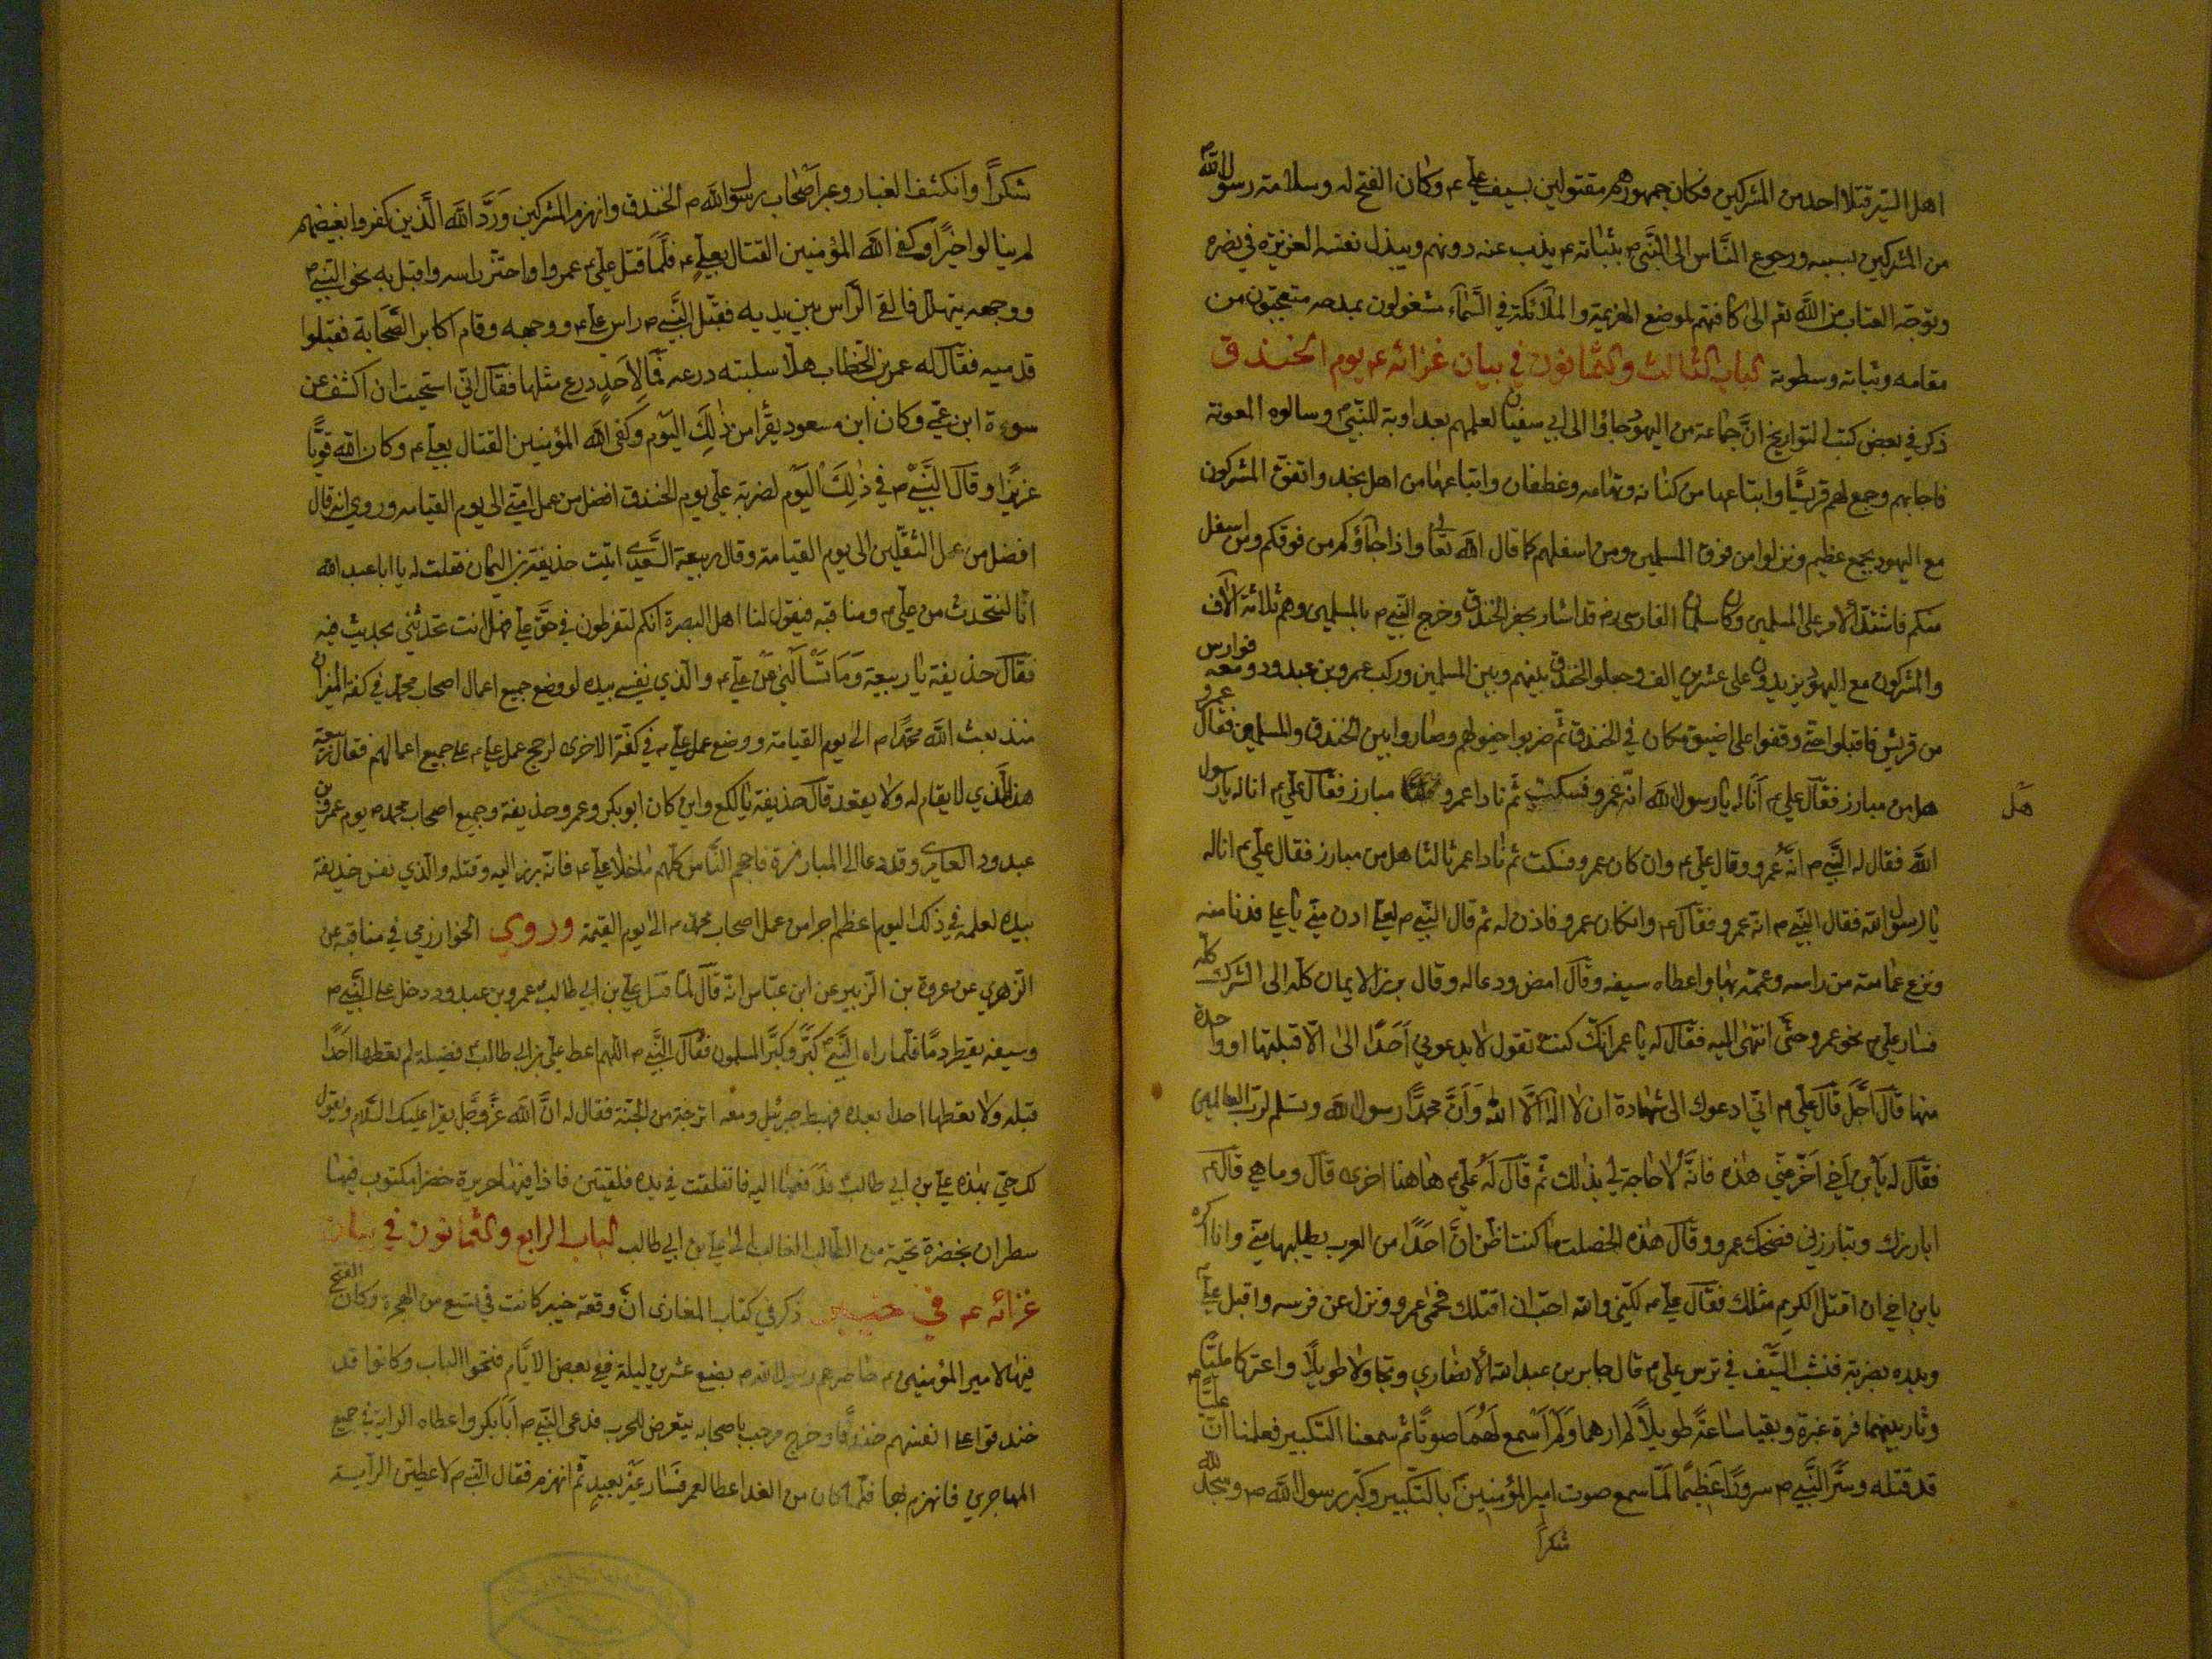 اهل السير قتلا احد من المشركين فكان جمهورهم مقتولين بسيف علي ع وكان الفتح له وسلامته رسول الله ص
من المشركين بسببه ورجوع الناس الى النبي ص بثباته ع يذب عنه دونهم ويبذل نفسه العزيزة في نصره
وتوجه العتاب من الله تعم الى كافتهم لموضع الهزيمة والملائكة في السماء مشغولون بمدحه متعجبون من
مقامه وثباته وسطوته الباب الثالث والثمانون في بيان غزائه ع يوم الخندق
ذكر في بعض كتب التواريخ ان جماعة من اليهود جاؤا الى ابي سفيان لعلمهم بعداوته للنبي ص وسالوه المعونة
فاجابهم وجمع لهم قريشا واتباعها من كنانه وتهامه وغطفان واتباعها من اهل نجد واتفق المشركون
مع اليهود بجمع عظيم ونزلوا من فوق المسلمين ومن اسفلهم كما قال الله تعالى واذا جاؤكم من فوقكم ومن اسفل
منكم فاشتد الامر على المسلمين وكان سلمان الفارسي رض قد اشار بحفر الخندق وخرج النبي ص بالمسلمين وهم ثلاثة آلاف
والمشركون مع اليهود يزيدون على عشرين الف وجعلوا الخندق بينهم وبين المسلمين وركب عمرو بن عبدود ومعه فوارس
من قريش فاقبلوا حتى وقفوا على اضيق مكان في الخندق ثم ضربوا خيولهم وصاروا بين الخندق والمسلمين فقال عمرو
هل من مبارز فقال علي ع انا له يا رسول الله انه عمرو فسكت ثم نادا عمرو مبارز فقال علي ع انا له يا رسول
هل
الله فقال له النبي ص انه عمرو وقال علي ع وان كان عمرو فسكت ثم نادا عمر ثالثا هل من مبارز فقال علي ع انا له
يا رسول الله فقال النبي ص انه عمرو فقال ع وان كان عمرو فاذن له ثم قال النبي ص لعلي ادن مني يا علي فدنا منه
ونزع عمامته من راسه وعممه بها واعطاه سيفه وقال امض ودعا له وقال برز الايمان كله الى الشرك كله
فسار علي ع نحو عمرو حتى انتهى اليه فقال له يا عمر انك كنت تقول لا يدعوني احدا الى الا قبلتها او واحدة
منها قال اجل قال علي ع اني ادعوك الى شهادة ان لا اله الا الله وان محمدا رسول الله وتسلم لرب العالمين
فقال له يا بن اخي اخر عني هذه فانه لا حاجة لي بذلك ثم قال له علي ع هاهنا اخرى قال وما هي قال ع
ابارزك وتبارزني فضحك عمرو وقال هذه الخصلت ما كنت اظن ان احدا من العرب يطلبها مني وانا اكره
يا بن اخي ان اقتل الكريم مثلك فقال علي ع لكني والله احب ان اقتلك فحمى عمرو ونزل عن فرسه واقبل علي
وبدره بضربة فنشب السيف في ترس علي ع قال جابر بن عبد الله الانصاري وتجاولا طويلا واعتركا مليا
وثار بينهما فرة غبرة وبقيا ساعة طويلا لم ارهما ولم اسمع لهما صوتا ثم سمعنا التكبير فعلمنا ان عليا
قد قتله وسر النبي ص سرورا عظيما لما سمع صوت امير المؤمنين بالتكبير وكبر رسول الله ص وسجد لله
شكرا
شكرا وانكشف الغبار وعبر اصحاب رسول الله ص الخندق وانهزم المشركين ورد الله الذين كفروا بغيضهم
لم ينالوا خيرا وكفى الله المؤمنين القتال بعلي ع فلما قتل علي ع عمروا واحتز راسه واقبل به نحو النبي ص
ووجهه يتهلل فالقى الراس بين يديه فقبل النبي ص راس علي ع ووجهه وقام اكابر الصحابة فقبلوا
قدميه فقال له عمر بن الخطاب هلا سلبته درعه فما لاحد درع مثلها فقال اني استحيت ان اكشف عن
سوءة ابن عمي وكان ابن مسعود يقرأ من ذلك اليوم وكفى الله المؤمنين القتال بعلي ع وكان الله قويا
عزيزا وقال النبي ص في ذلك اليوم لضربة علي يوم الخندق افضل من عمل امتي الى يوم القيامه وروي انه قال
افضل من عمل الثقلين الى يوم القيامة وقال ربيعة السعدي اتيت حذيفة بن اليمان فقلت له يا ابا عبد الله
انا لنتحدث من علي ع ومناقبه فيقول لنا اهل البصرة انكم لتفرطون في حق علي فهل انت تحدثني بحديث فيه
فقال حذيفة يا ربيعة وما تسالني عن علي ع والذي نفسي بيده لو وضع جميع اعمال اصحاب محمد في كفة الميزان
منذ بعث الله محمدا ص الى يوم القيامة ووضع عمل علي ع في كفة الاخرى لرجح عمل علي ع على جميع اعمالهم فقال ربيعة
هذا الذي لا يقام له ولا يقعد قال حذيفة يا لكع واين كان ابو بكر وعمر وحذيفة وجميع اصحاب محمد ص يوم عمرو بن
عبدود العامري وقد دعا الى المبارزة فاحجم الناس كلهم ما خلا علي ع فانه برز اليه وقتله والذي نفس حذيفة
بيده لعلمه في ذلك اليوم اعظم اجرا من عمل اصحاب محمد ص الى يوم القيمة وروي الخوارزمي في مناقبه عن
الزهري عن عروة بن الزبير عن ابن عباس انه قال لما قتل علي بن ابي طالب ع عمرو بن عبدود دخل على النبي ص
وسيفه يقطر دما فلما راه النبي كبر وكبر المسلمون فقال النبي ص اللهم اعط علي بن ابي طالب فضيلة لم يعطها احدا
قبله ولا يعطها احدا بعده فهبط جبرئيل ومعه اترجة من الجنة فقال له ان الله عز وجل يقرا عليك السلام ويقول
لك حي بهذه علي بن ابي طالب فدفعها اليه فانفلقت في يده فلقتين فاذا فيها حريرة خضرا مكتوب فيها
سطران بخضرة تحية من الطالب الغالب الى علي بن ابي طالب الباب الرابع والثمانون في بيان
غزائه ع في خيبر ذكر في كتاب المغازى ان وقعة خيبر كانت في سبع من الهجرة وكان الفتح
فيها لامير المؤمنين ع حاصرهم رسول الله ص بضع عشرين ليلة ففي بعض الايام فتحوا الباب وكانوا قد
خندقوا على انفسهم خندقا وخرج مرحب باصحابه يتعرض للحرب فدعى النبي ص ابا بكر واعطاه الراية في جمع
المهاجرين فانهزم بها فلما كان من الغد اعطا لعمر فسار غير بعيد ثم انهزم فقال النبي ص لاعطين الراية